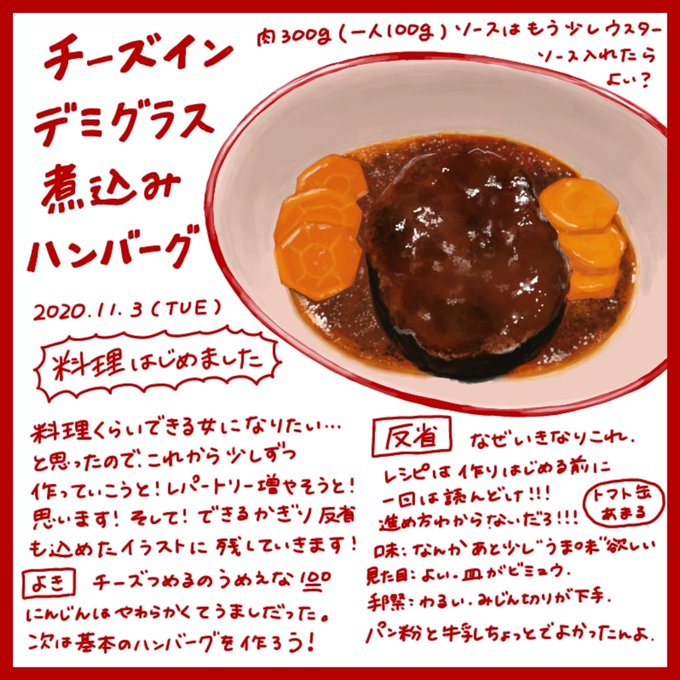 チーズイン
デミグラス
煮込み
ハンバーグ
肉300g(一人100g)ソースはもう少しウスター
ソース入れたら
よい?
2020.11.3(TUE)
料理はじめました
料理くらいできる女になりたい…
と思ったので、これから少しずつ
作っていこうと!レパートリー増やそうと!
思います!そして!できるかぎり反省
も込めたイラストに残していきます!
よき チーズつめるのうめえな100
にんじんはやわらかくてうましだった。
次は基本のハンバーグを作ろう!
反省 なぜいきなりこれ.
レシピは作りはじめる前に
一回は読んどけ!!!
進め方わからないだろ!!!
トマト缶
あまる
味:なんかあと少し"うま味"欲しい
見た目:よい.皿がビミョウ.
手際:わるい.みじん切りが下手.
パン粉と牛乳しちょっとでよかったんよ.